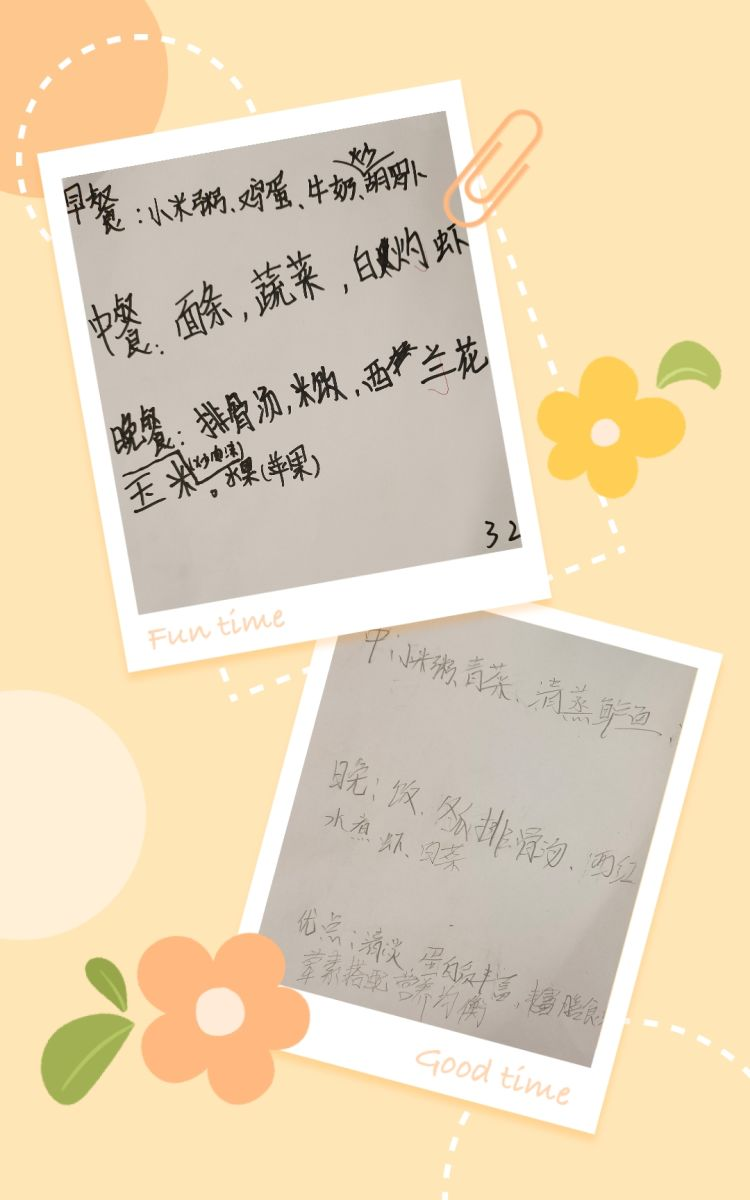 炒
早餐：小米粥、鸡蛋、牛奶、胡萝卜
中餐：面条，蔬菜，白灼虾
晚餐：排骨汤，米饭，西兰花
玉米(炒清淡)。水果(苹果)
32
Fun time
中：小米粥、青菜、清蒸鲈鱼、
晚：饭、冬瓜排骨汤、西红
水煮虾、白菜
优点：清淡 蛋白质丰富，富膳食
荤素搭配 营养均衡
Good time